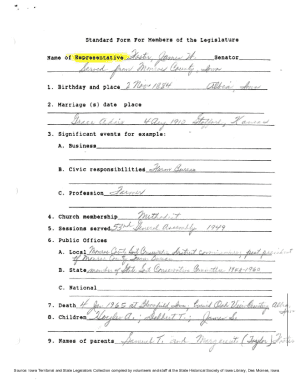 Standard Form For Members of the Legislature
Name of Representative Foster, James W. Senator
Served from Monroe County, Iowa
1. Birthday and place 2 Nov 1884 Albia, Iowa
2. Marriage (s) date place
4 Aug 1910 Stafford, Kansas
3. Significant events for example:
A. Business
B. Civic responsibilities Farm Bureau
C. Profession Farmer
4. Church membership Methodist
5. Sessions served 53rd General Assembly 1949
6. Public Offices
A. Local Monroe district commissioner, past president
of Monroe County Farm Bureau
B. State member of State Soil Conservation Committee
C. National
7. Death 4 Jan 1965 Iowa, buried Oak View Cemetery
8. Children
9. Names of parents Samuel T. and Margaret (Taylor)
Source: Iowa Territorial and State Legislators Collection compiled by volunteers and staff at the State Historical Society of Iowa Library, Des Moines, Iowa.